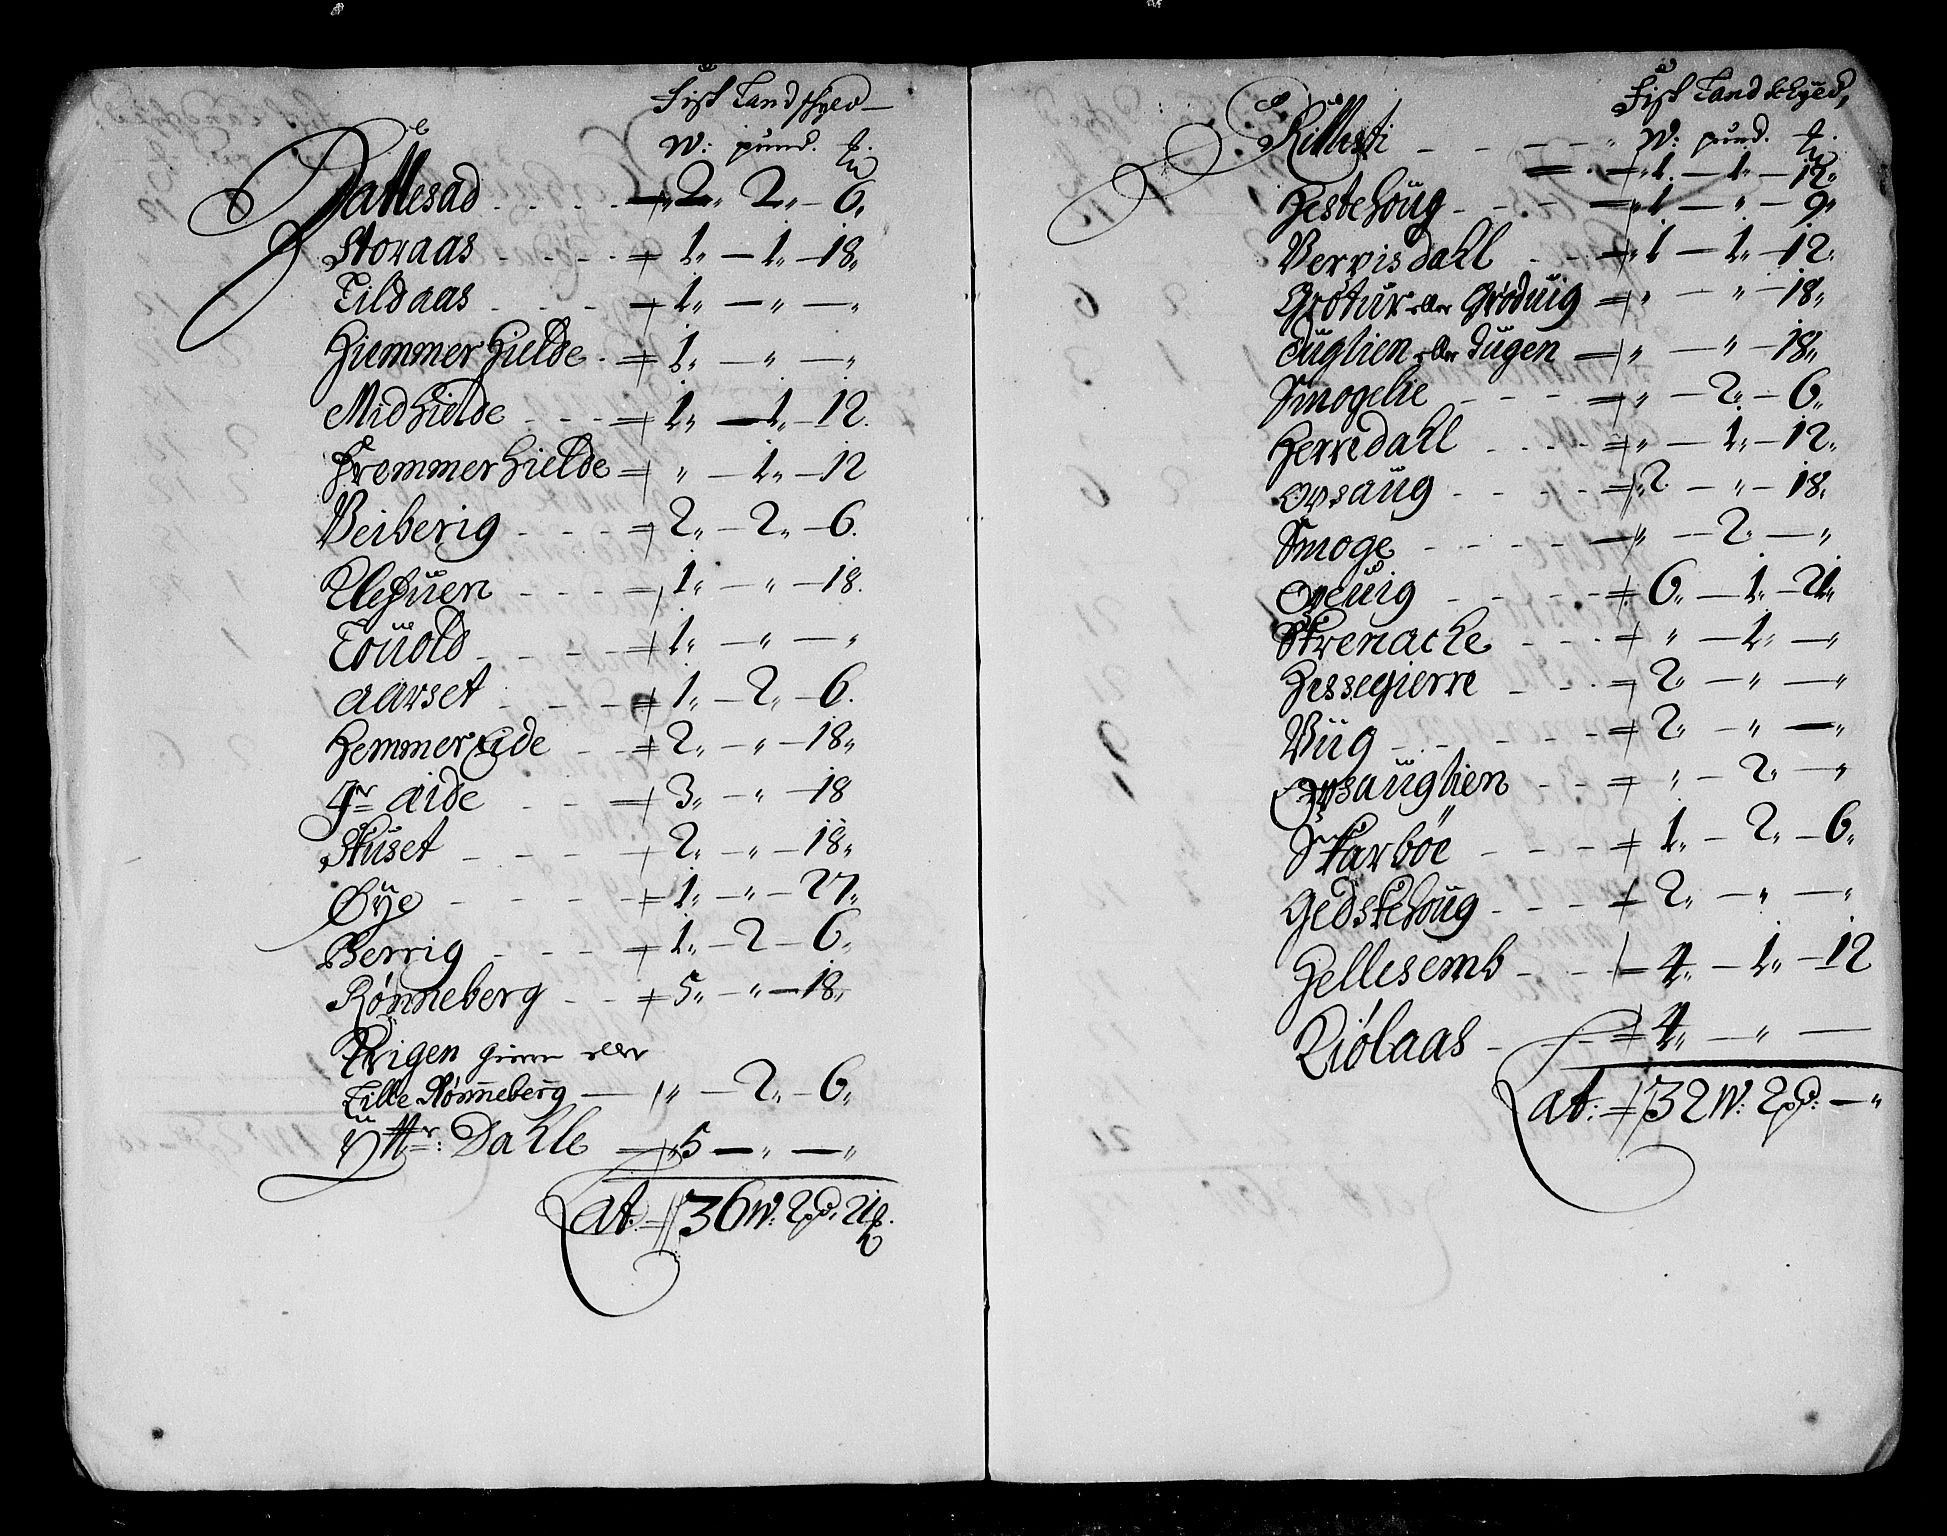 Fisk Landskyld
W: pund. ℔
Jattesad - - - - 2„ 2„ - 6„
Storaas - - - - 1„ - 1„ - 18„
Lildaas - - - - 1„ - „ - „
Hiemmer Hielde - 1„ - „ - „
Midhielde - - - 1„ - 1„ - 12.
Fremmerhielde = „ - 1„ - 12
Veiberig - - - 2„ - 2„ - 6.
Uehuen - - - 1„ - „ - 18.
Louold - - - 1„ - „ - „
Aarset - - - - 1„ - 2„ - 6.
Hemmer Eide - - 2„ - „ - 18„
Jr Aide - - - 3„ - „ - 18
Stuset - - - - 2„ - „ - 18„
Øye - - - - 1„ - „ - 27„
Berrig - - - - 1„ - 2 - 6„
Rønneberg - - - 5„ - „ - 18„
Krigen gieren eller
Lille Rønneberg - „ - 2„ - 6„
Ytter: Dahle - 5 - „ - „
Lat: 36 W: 2 pd. 21 ℔.
Fisk Landskyld,
Killesti - - - - - „ W: pund. ℔.
- - 1. - 1„ - 12„
Hestehoug - - - - „ 1 - „ - 9„
Vervisdahl - - - „ 1 - 1„ - 12„
Grotur eller Grøduig = „ - „ - 18„
Duglien eller Dugen - „ - „ - 18„
Smogelie - - - - „ - 2„ - 6„
Herredahl - - - - „ - 1„ - 12„
Opsaug - - - - „ 2 - „ - 18„
Smoge - - - - „ - 2„ - „
Opeuig - - - - 6„ - 1„ - 21„
Strenache - - - „ - 1„ - „
Hessegierre - - - 2„ - „ - „
Viig - - - - - 2„ - „ - „
Opsauglien - - „ - 2„ - „
Skarbøe - - - - 1„ - 2„ - 6„
Gedskehoug - - - 2„ - „ - „
Hellesemb - - - 4„ - 1„ - 12
Kiølaas - - - - 4„ - „ -
Lat: 32 W: 2 pd: - „